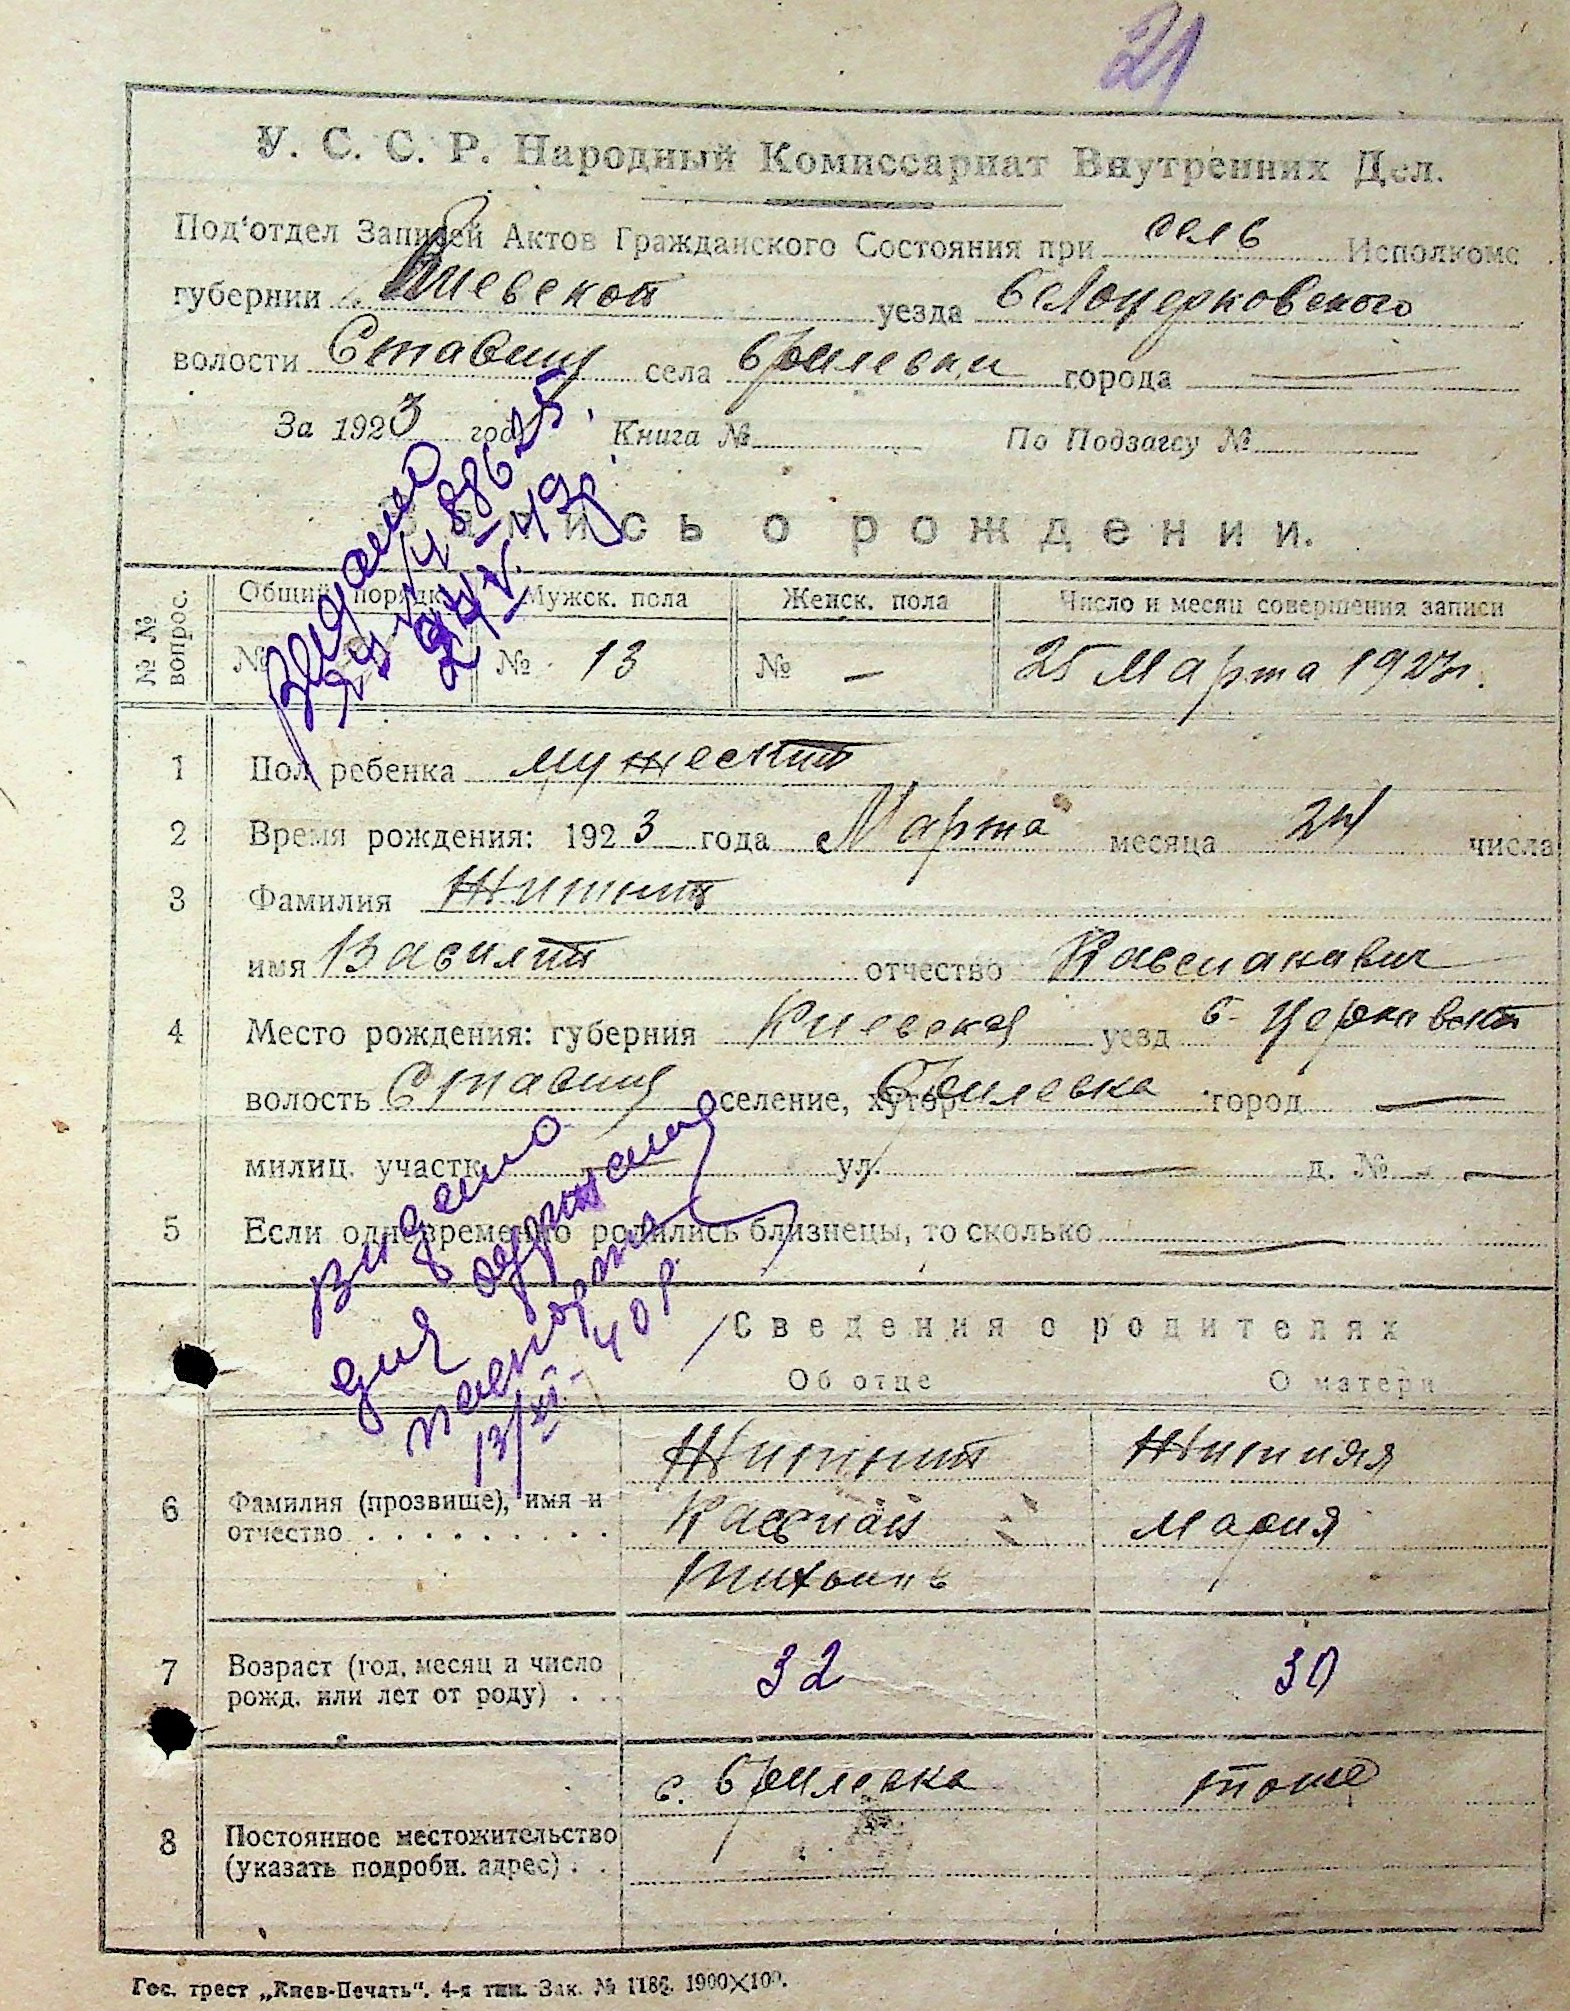 21
У. С. С. Р. Народный Комиссариат Внутренних Дел.
Под'отдел Записей Актов Гражданского Состояния при сель Исполкоме
губернии Киевской уезда белоцерковского
волости Ставищ села брилевки города —
За 1923 год Книга № По Подзагсу №
Запись о рождении.
№ № вопрос. Общий порядк. Мужск. пола Женск. пола Число и месяц совершения записи
№ № 13 № — 25 Марта 1923г.
1 Пол ребенка мужеский
2 Время рождения: 1923 года Марта месяца 24 числа
3 Фамилия Житний
имя Василий отчество Касианавич
4 Место рождения: губерния Киевская уезд б-Церковский
волость Ставищ селение, хутор Брилевка город —
милиц. участк. — ул. — д. № —
5 Если одновременно родились близнецы, то сколько —
Видано
для одержання
паспорта
13/XI-40р.
Сведения о родителях
Об отце О матери
6 Фамилия (прозвище), имя и отчество Житний Житняя
Касиян Мария
7 Возраст (год, месяц и число рожд. или лет от роду) 32 30
8 Постоянное местожительство (указать подробн. адрес) с. брилевка тоже
Гос. трест „Киев-Печать“. 4-я тип. Зак. № 1186. 1900×100.